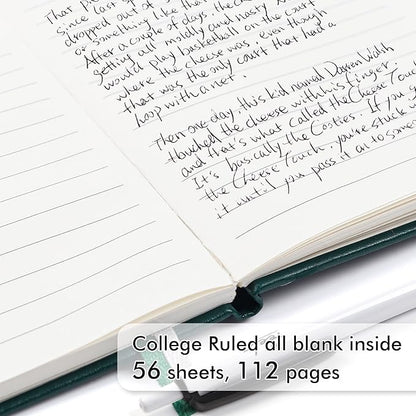 That
Since last
dropped out of
or something like this
After a couple of days, the ch
getting all moldy and nasty. N
would play basketball on the court
where the cheese was, even though
that was the only court that had a
hoop with a net.
Then one day, this kid named Darren Walsh
touched the cheese with his finger,
and that's what called the Cheese Touc
It's basically the Cooties. If you g
the Cheese Touch, you're stuck
it until you pass it on to someo
College Ruled all blank inside
56 sheets, 112 pages